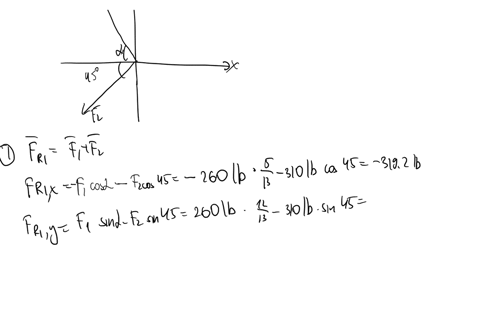 α
x
45°
F̄₂
① F̄R₁ = F̄₁ + F̄₂
FR₁,x = -F₁ cosα - F₂ cos 45 = - 260 lb · 5/13 - 310 lb cos 45 = -319.2 lb
F̄R₁,y = F₁ sinα - F₂ sin 45 = 260 lb · 12/13 - 310 lb · sin 45 =